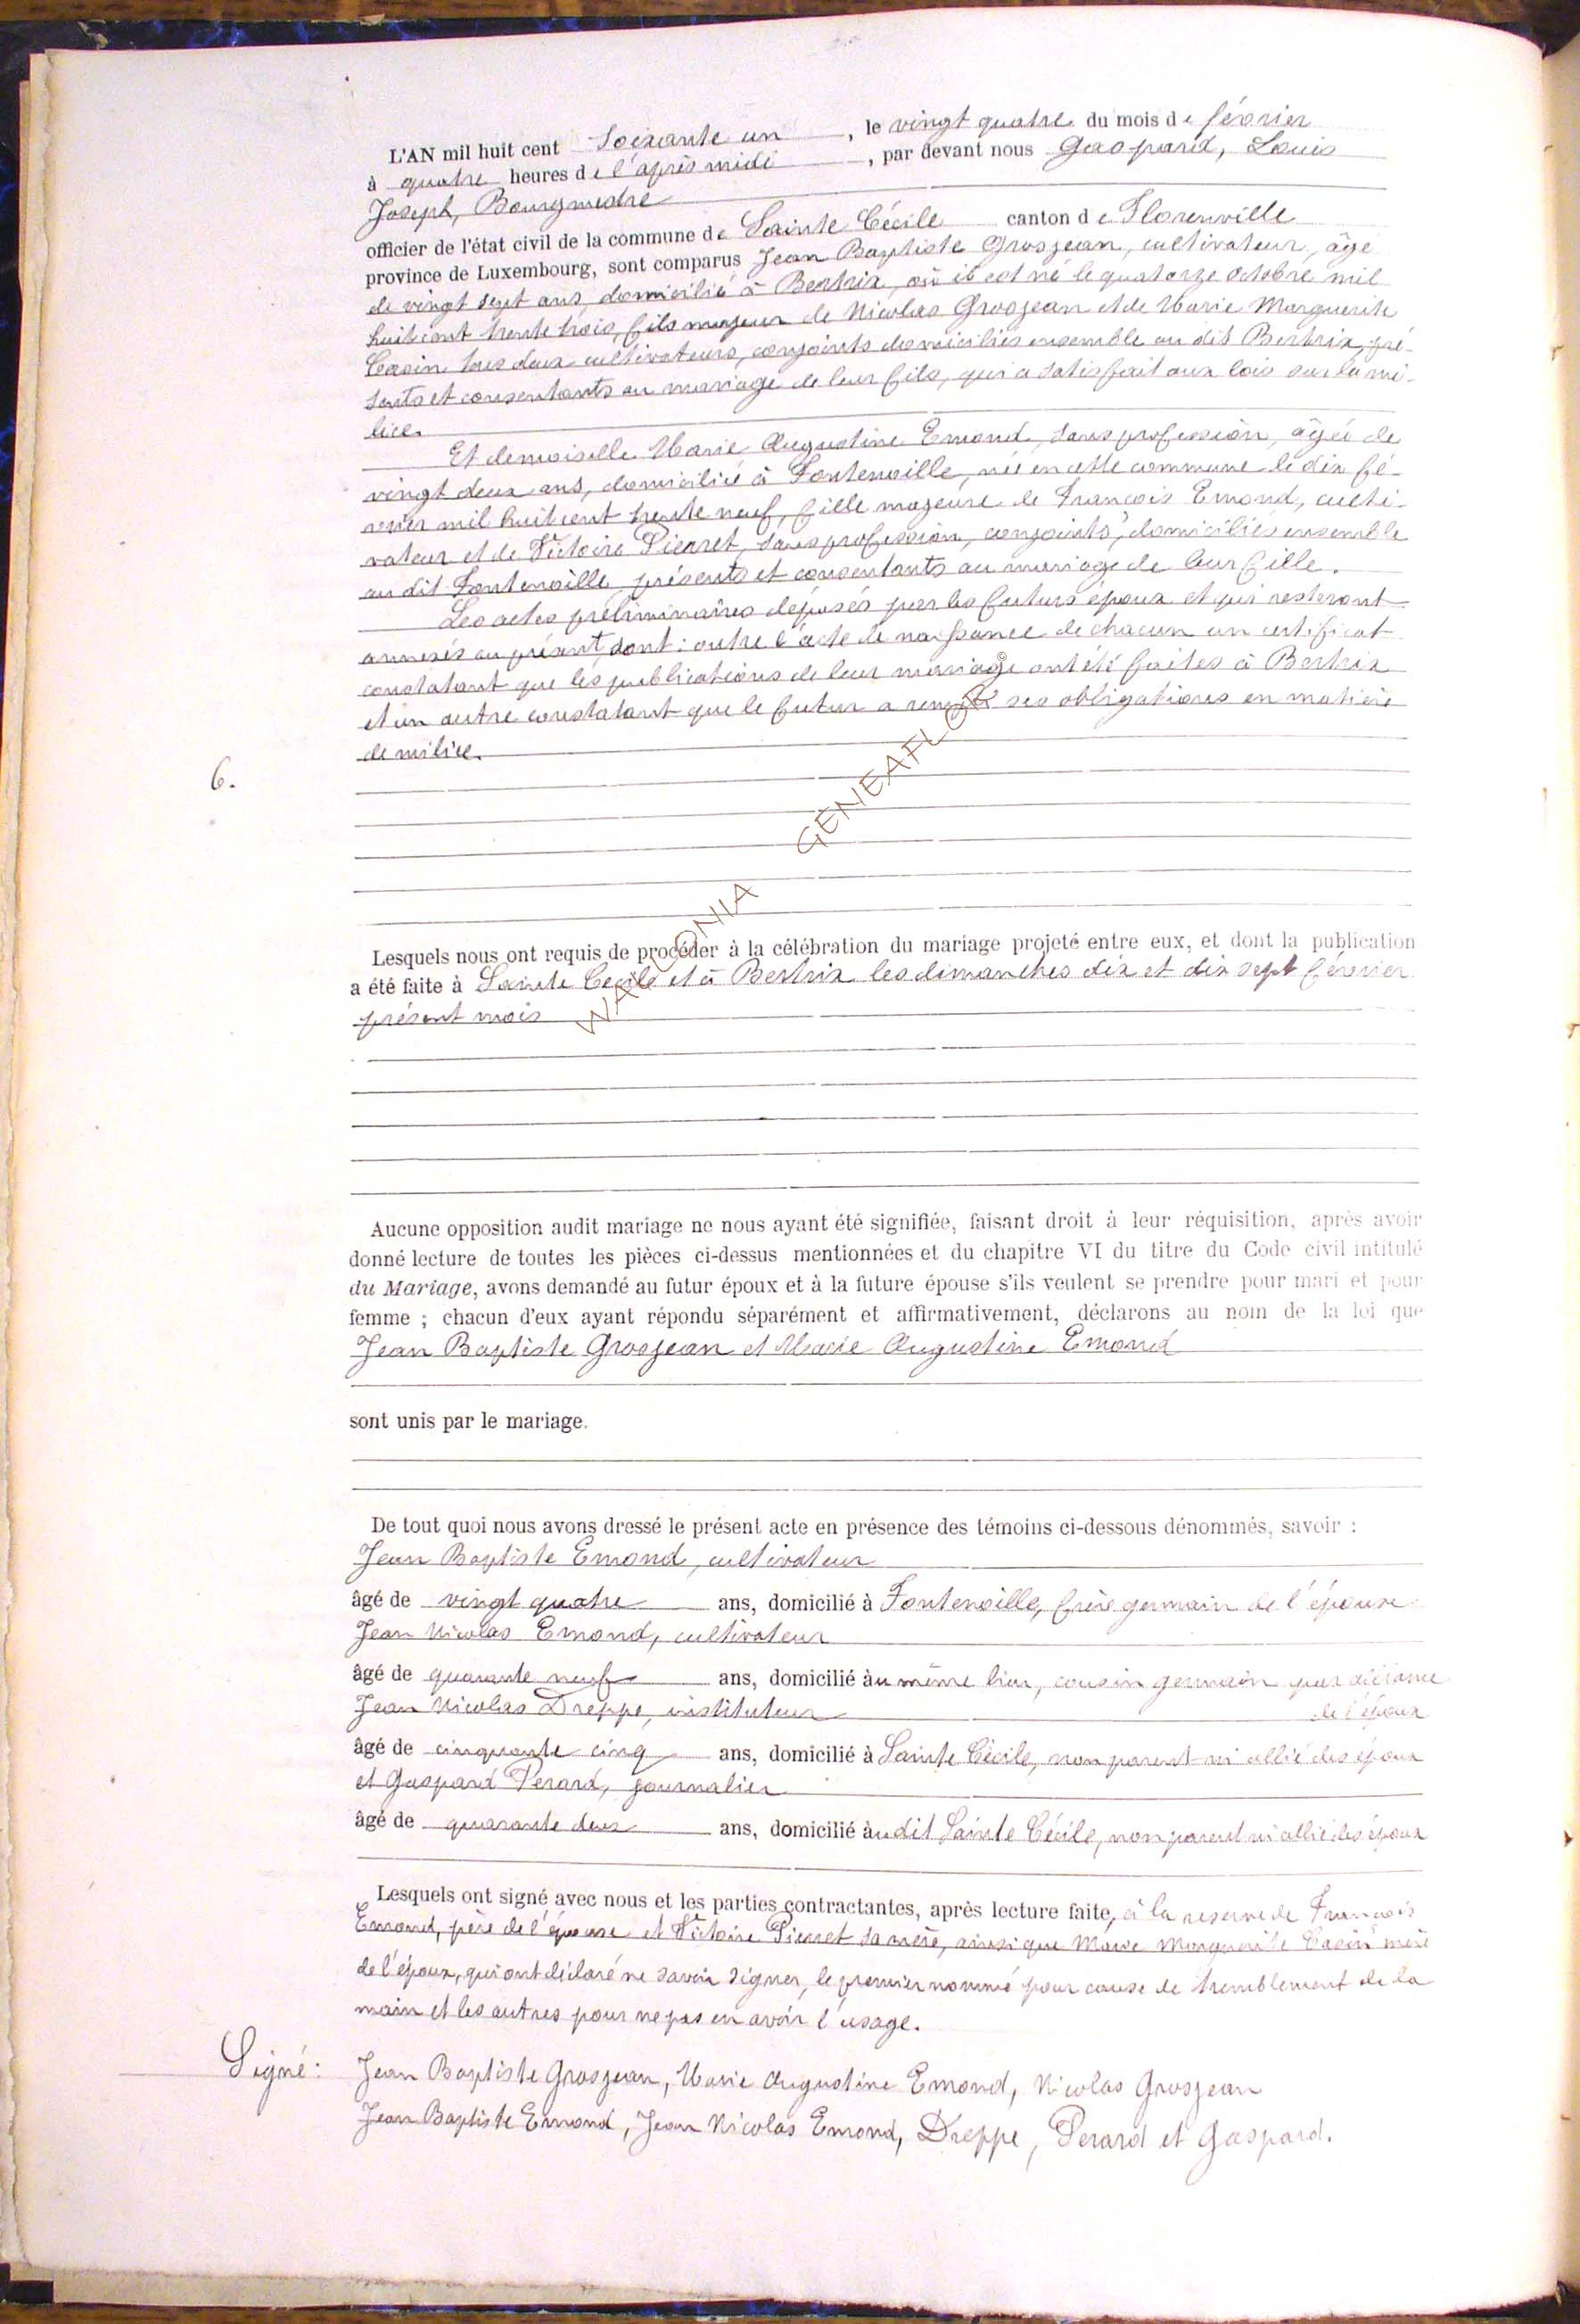 L'AN mil huit cent soixante un, le vingt quatre du mois de février
à quatre heures de l'après midi, par devant nous Gaspard, Louis
Joseph, Bourgmestre
officier de l'état civil de la commune de Sainte Cécile canton de Florenville
province de Luxembourg, sont comparus Jean Baptiste Grosjean, cultivateur, âgé
de vingt sept ans, domicilié à Bertrix, où il est né le quatorze octobre mil
huit cent trente trois, fils majeur de Nicolas Grosjean et de Marie Marguerite
Casin tous deux cultivateurs, conjoints domiciliés ensemble au dit Bertrix, pré-
sents et consentants au mariage de leur fils, qui a satisfait aux lois sur la mi-
lice.
Et demoiselle Marie Augustine Emond, sans profession, âgée de
vingt deux ans, domiciliée à Fontenoille, née en cette commune le dix fé-
vrier mil huit cent trente neuf, fille majeure de François Emond, culti-
vateur et de Victoire Pierret, sans profession, conjoints, domiciliés ensemble
au dit Fontenoille, présents et consentants au mariage de leur fille.
Les actes préliminaires déposés par les futurs époux et qui resteront
annexés au présent, sont : outre l'acte de naissance de chacun un certificat
constatant que les publications de leur mariage ont été faites à Bertrix
et un autre constatant que le futur a rempli ses obligations en matière
de milice.
6.
WALLONIA GENEAFLOR ©
Lesquels nous ont requis de procéder à la célébration du mariage projeté entre eux, et dont la publication
a été faite à Sainte Cécile et à Bertrix les dimanches dix et dix sept février
présent mois
Aucune opposition audit mariage ne nous ayant été signifiée, faisant droit à leur réquisition, après avoir
donné lecture de toutes les pièces ci-dessus mentionnées et du chapitre VI du titre du Code civil intitulé
du Mariage, avons demandé au futur époux et à la future épouse s'ils veulent se prendre pour mari et pour
femme ; chacun d'eux ayant répondu séparément et affirmativement, déclarons au nom de la loi que
Jean Baptiste Grosjean et Marie Augustine Emond
sont unis par le mariage.
De tout quoi nous avons dressé le présent acte en présence des témoins ci-dessous dénommés, savoir :
Jean Baptiste Emond, cultivateur
âgé de vingt quatre ans, domicilié à Fontenoille, frère germain de l'épouse
Jean Nicolas Emond, cultivateur
âgé de quarante neuf ans, domicilié au même lieu, cousin germain par alliance
de l'époux
Jean Nicolas Dreppe, instituteur
âgé de cinquante cinq ans, domicilié à Sainte Cécile, non parent ni allié des époux
et Gaspard Perard, journalier
âgé de quarante deux ans, domicilié audit Sainte Cécile, non parent ni allié des époux
Lesquels ont signé avec nous et les parties contractantes, après lecture faite, à la reserve de François
Emond, père de l'épouse et Victoire Pierret sa mère, ainsi que Marie Marguerite Casin mère
de l'époux, qui ont déclaré ne savoir signer, le premier nommé pour cause de tremblement de la
main et les autres pour ne pas en avoir l'usage.
Signé : Jean Baptiste Grosjean, Marie Augustine Emond, Nicolas Grosjean
Jean Baptiste Emond, Jean Nicolas Emond, Dreppe, Perard et Gaspard.